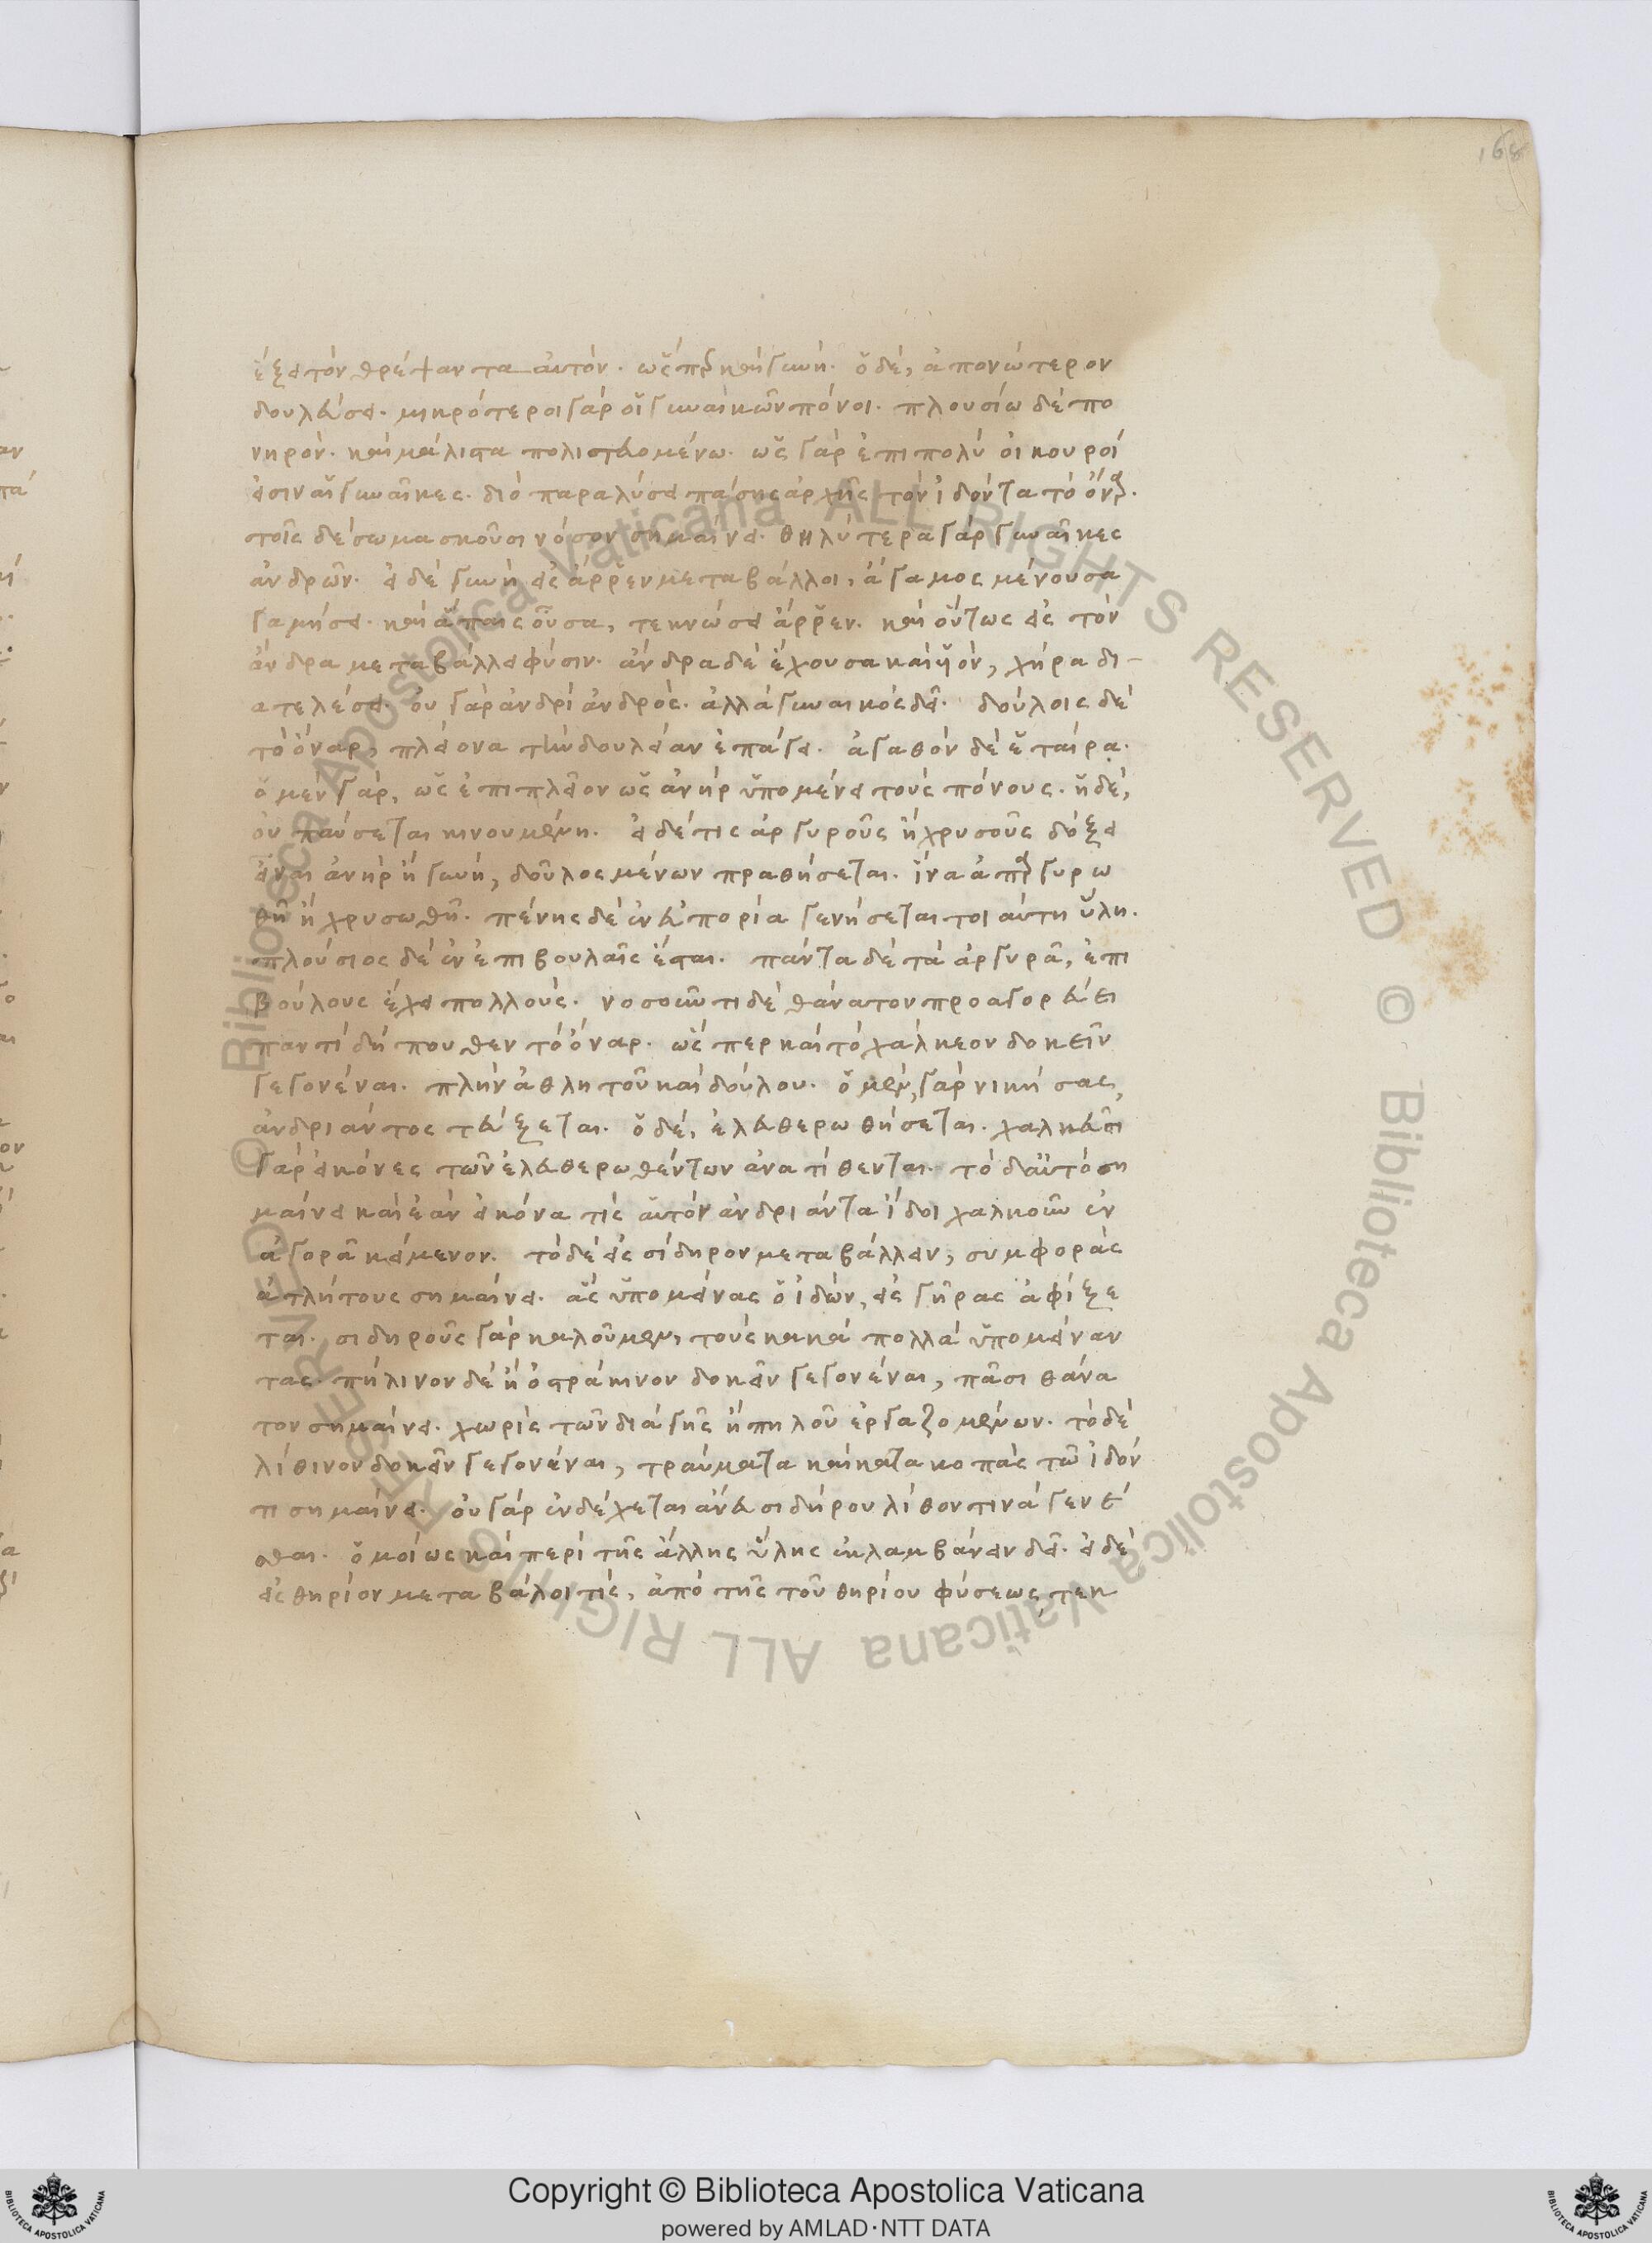 168
ἕξει τὸν θρέψαντα αὐτόν. ὥσπερ καὶ γυνή. ὁ δέ, ἀπονώτερον
δουλεύσει. μικρότεροι γάρ οἱ γυναικῶν πόνοι. πλουσίω δὲ πο
νηρόν. καὶ μάλιστα πολιτευομένω. ὡς γὰρ ἐπιπολύ οἰκουροί
εἰσιν αἱ γυναῖκες. διὸ παραλύσει πάσης ἀρχῆς τὸν ἰδόντα τὸ ὄναρ.
τοῖς δὲ σωμασκοῦσι νόσον σημαίνει. θηλύτεραι γὰρ γυναῖκες
ἀνδρῶν. εἰ δὲ γυνὴ εἰς ἄρρεν μεταβάλλοι, ἄγαμος μένουσα
γαμήσει. καὶ ἄπαις οὖσα, τεκνώσει ἄρρεν. καὶ οὕτως εἰς τὸν
ἄνδρα μεταβάλλει φύσιν. ἄνδρα δὲ ἔχουσα καὶ υἱόν, χήρα δι-
ατελέσει. οὐ γὰρ ἀνδρὶ ἀνδρός. ἀλλὰ γυναικός δεῖ. δούλοις δὲ
τὸ ὄναρ, πλείονα τὴν δουλείαν ἐπάγει. ἀγαθὸν δὲ ἑταίρα.
ὁ μὲν γάρ, ὡς ἐπιπλεῖον ὡς ἀνὴρ ὑπομένει τοὺς πόνους. ἡ δέ,
οὐ παύσεται κινουμένη. εἰ δέ τις ἀργυροῦς ἢ χρυσοῦς δόξει
εἶναι ἀνὴρ ἢ γυνή, δοῦλος μένων πραθήσεται. ἵνα ἀπαργυρω
θῆ ἢ χρυσωθῆ. πένης δὲ ἐν εὐπορία γενήσεται τοιαύτη ὕλη.
πλούσιος δὲ ἐν ἐπιβουλαῖς ἔσται. πάντα δὲ τὰ ἀργυρᾶ, ἐπι
βούλους ἔχει πολλούς. νοσοῦντι δὲ θάνατον προαγορεύει
παντὶ δήπουθεν τὸ ὄναρ. ὥσπερ καὶ τὸ χάλκεον δοκεῖν
γεγονέναι. πλὴν ἀθλητοῦ καὶ δούλου. ὁ μὲν γὰρ νικήσας,
ἀνδριάντος τεύξεται. ὁ δέ, ἐλευθερωθήσεται. χαλκεῖαι
γὰρ εἰκόνες τῶν ἐλευθερωθέντων ἀνατίθενται. τὸ δ' αὐτὸ ση
μαίνει καὶ ἐὰν εἰκόνα τις αὐτὸν ἀνδριάντα ἴδοι χαλκοῦν ἐν
ἀγορᾶ κείμενον. τὸ δὲ εἰς σίδηρον μεταβάλλειν, συμφορὰς
ἀτλήτους σημαίνει. ἃς ὑπομείνας ὁ ἰδών, εἰς γῆρας ἀφίξε
ται. σιδηροῦς γὰρ καλοῦμεν, τοὺς κακὰ πολλὰ ὑπομείναν
τας. πήλινον δὲ ἢ ὀστράκινον δοκεῖν γεγονέναι, πᾶσι θάνα
τον σημαίνει. χωρὶς τῶν διὰ γῆς ἢ πηλοῦ ἐργαζομένων. τὸ δὲ
λίθινον δοκεῖν γεγονέναι, τραύματα καὶ κατακοπὰς τῶ ἰδόν
τι σημαίνει. οὐ γὰρ ἐνδέχεται ἄνευ σιδήρου λίθον τινὰ γενέ
σθαι. ὁμοίως καὶ περὶ τῆς ἄλλης ὕλης ἐκλαμβάνειν δεῖ. εἰ δὲ
εἰς θηρίον μεταβάλοι τίς, ἀπὸ τῆς τοῦ θηρίου φύσεως, τεκ
© Biblioteca Apostolica Vaticana ALL RIGHTS RESERVED © Biblioteca Apostolica Vaticana ALL RIGHTS RESERVED
Copyright © Biblioteca Apostolica Vaticana
powered by AMLAD·NTT DATA